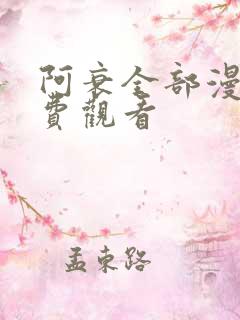 阿衰全部漫
費觀看
孟東路